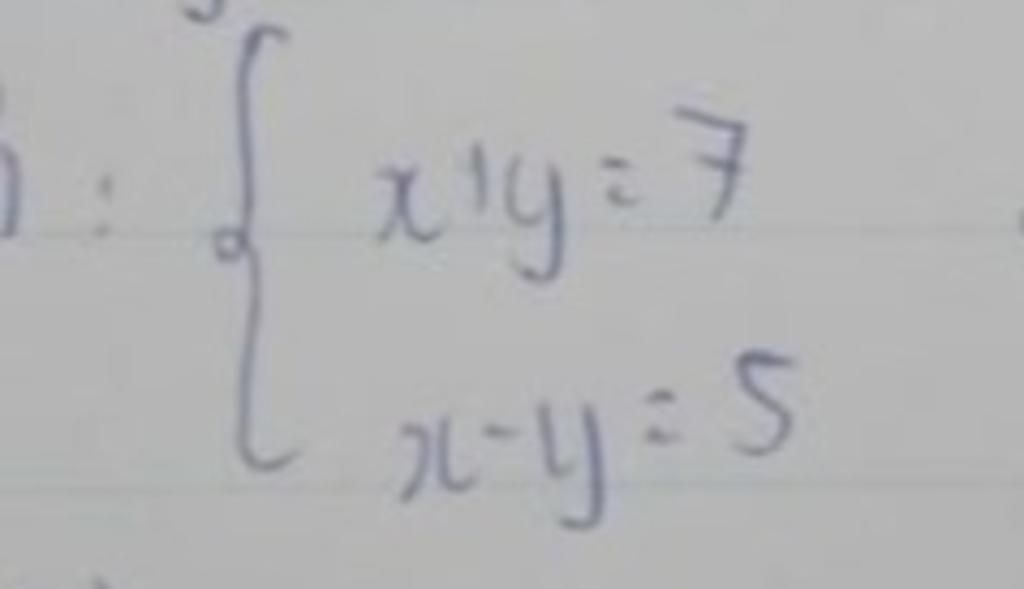 x+y=7
x-y=5